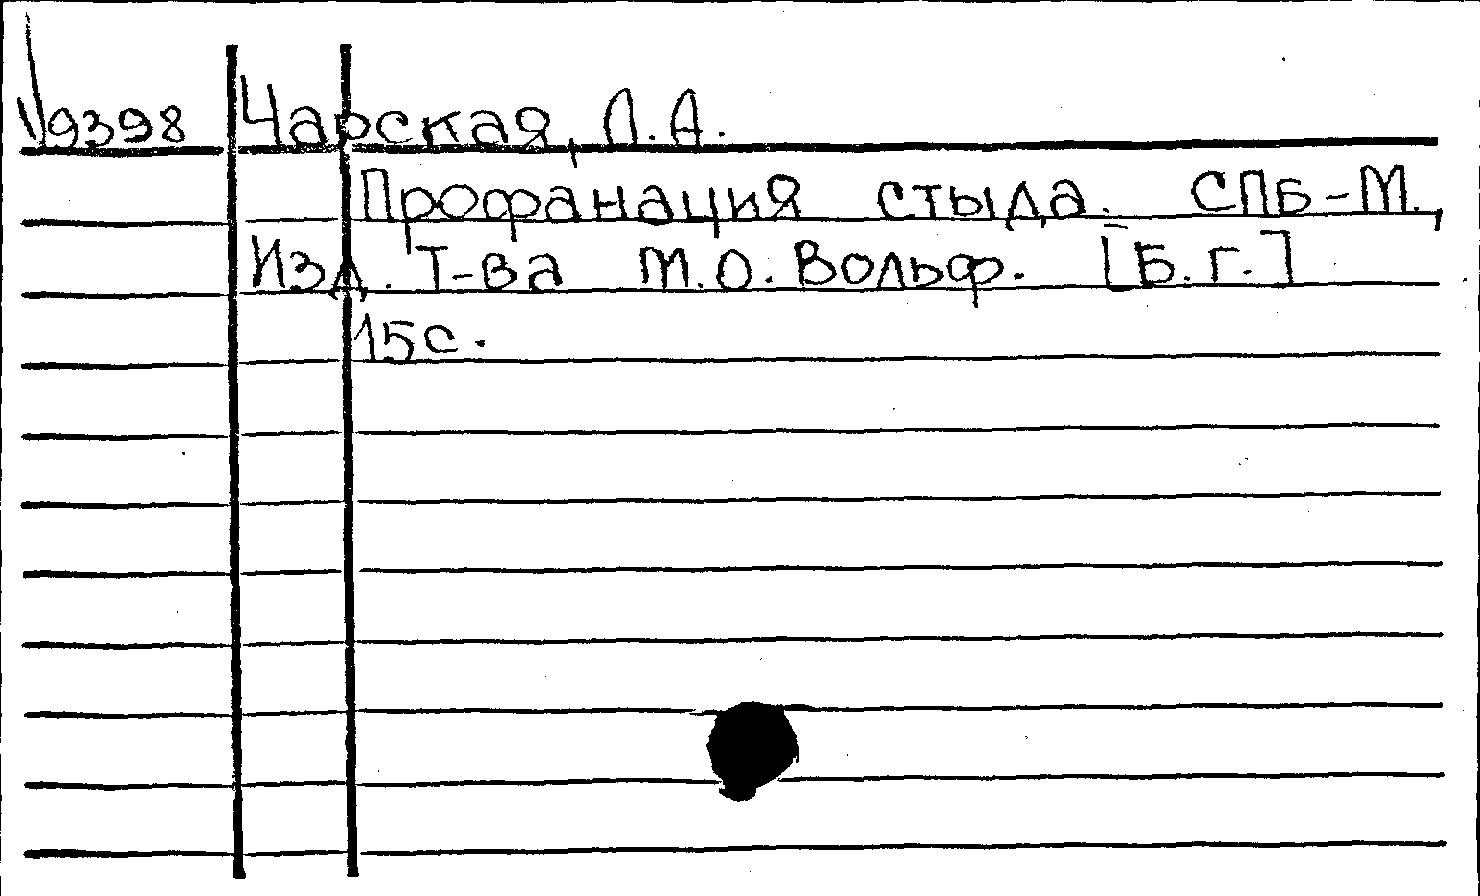 9398 Чарская, Л. А.
Профанация стыда. СПБ-М.,
Изд. Т-ва М.О. Вольф. [Б.г.]
15с.